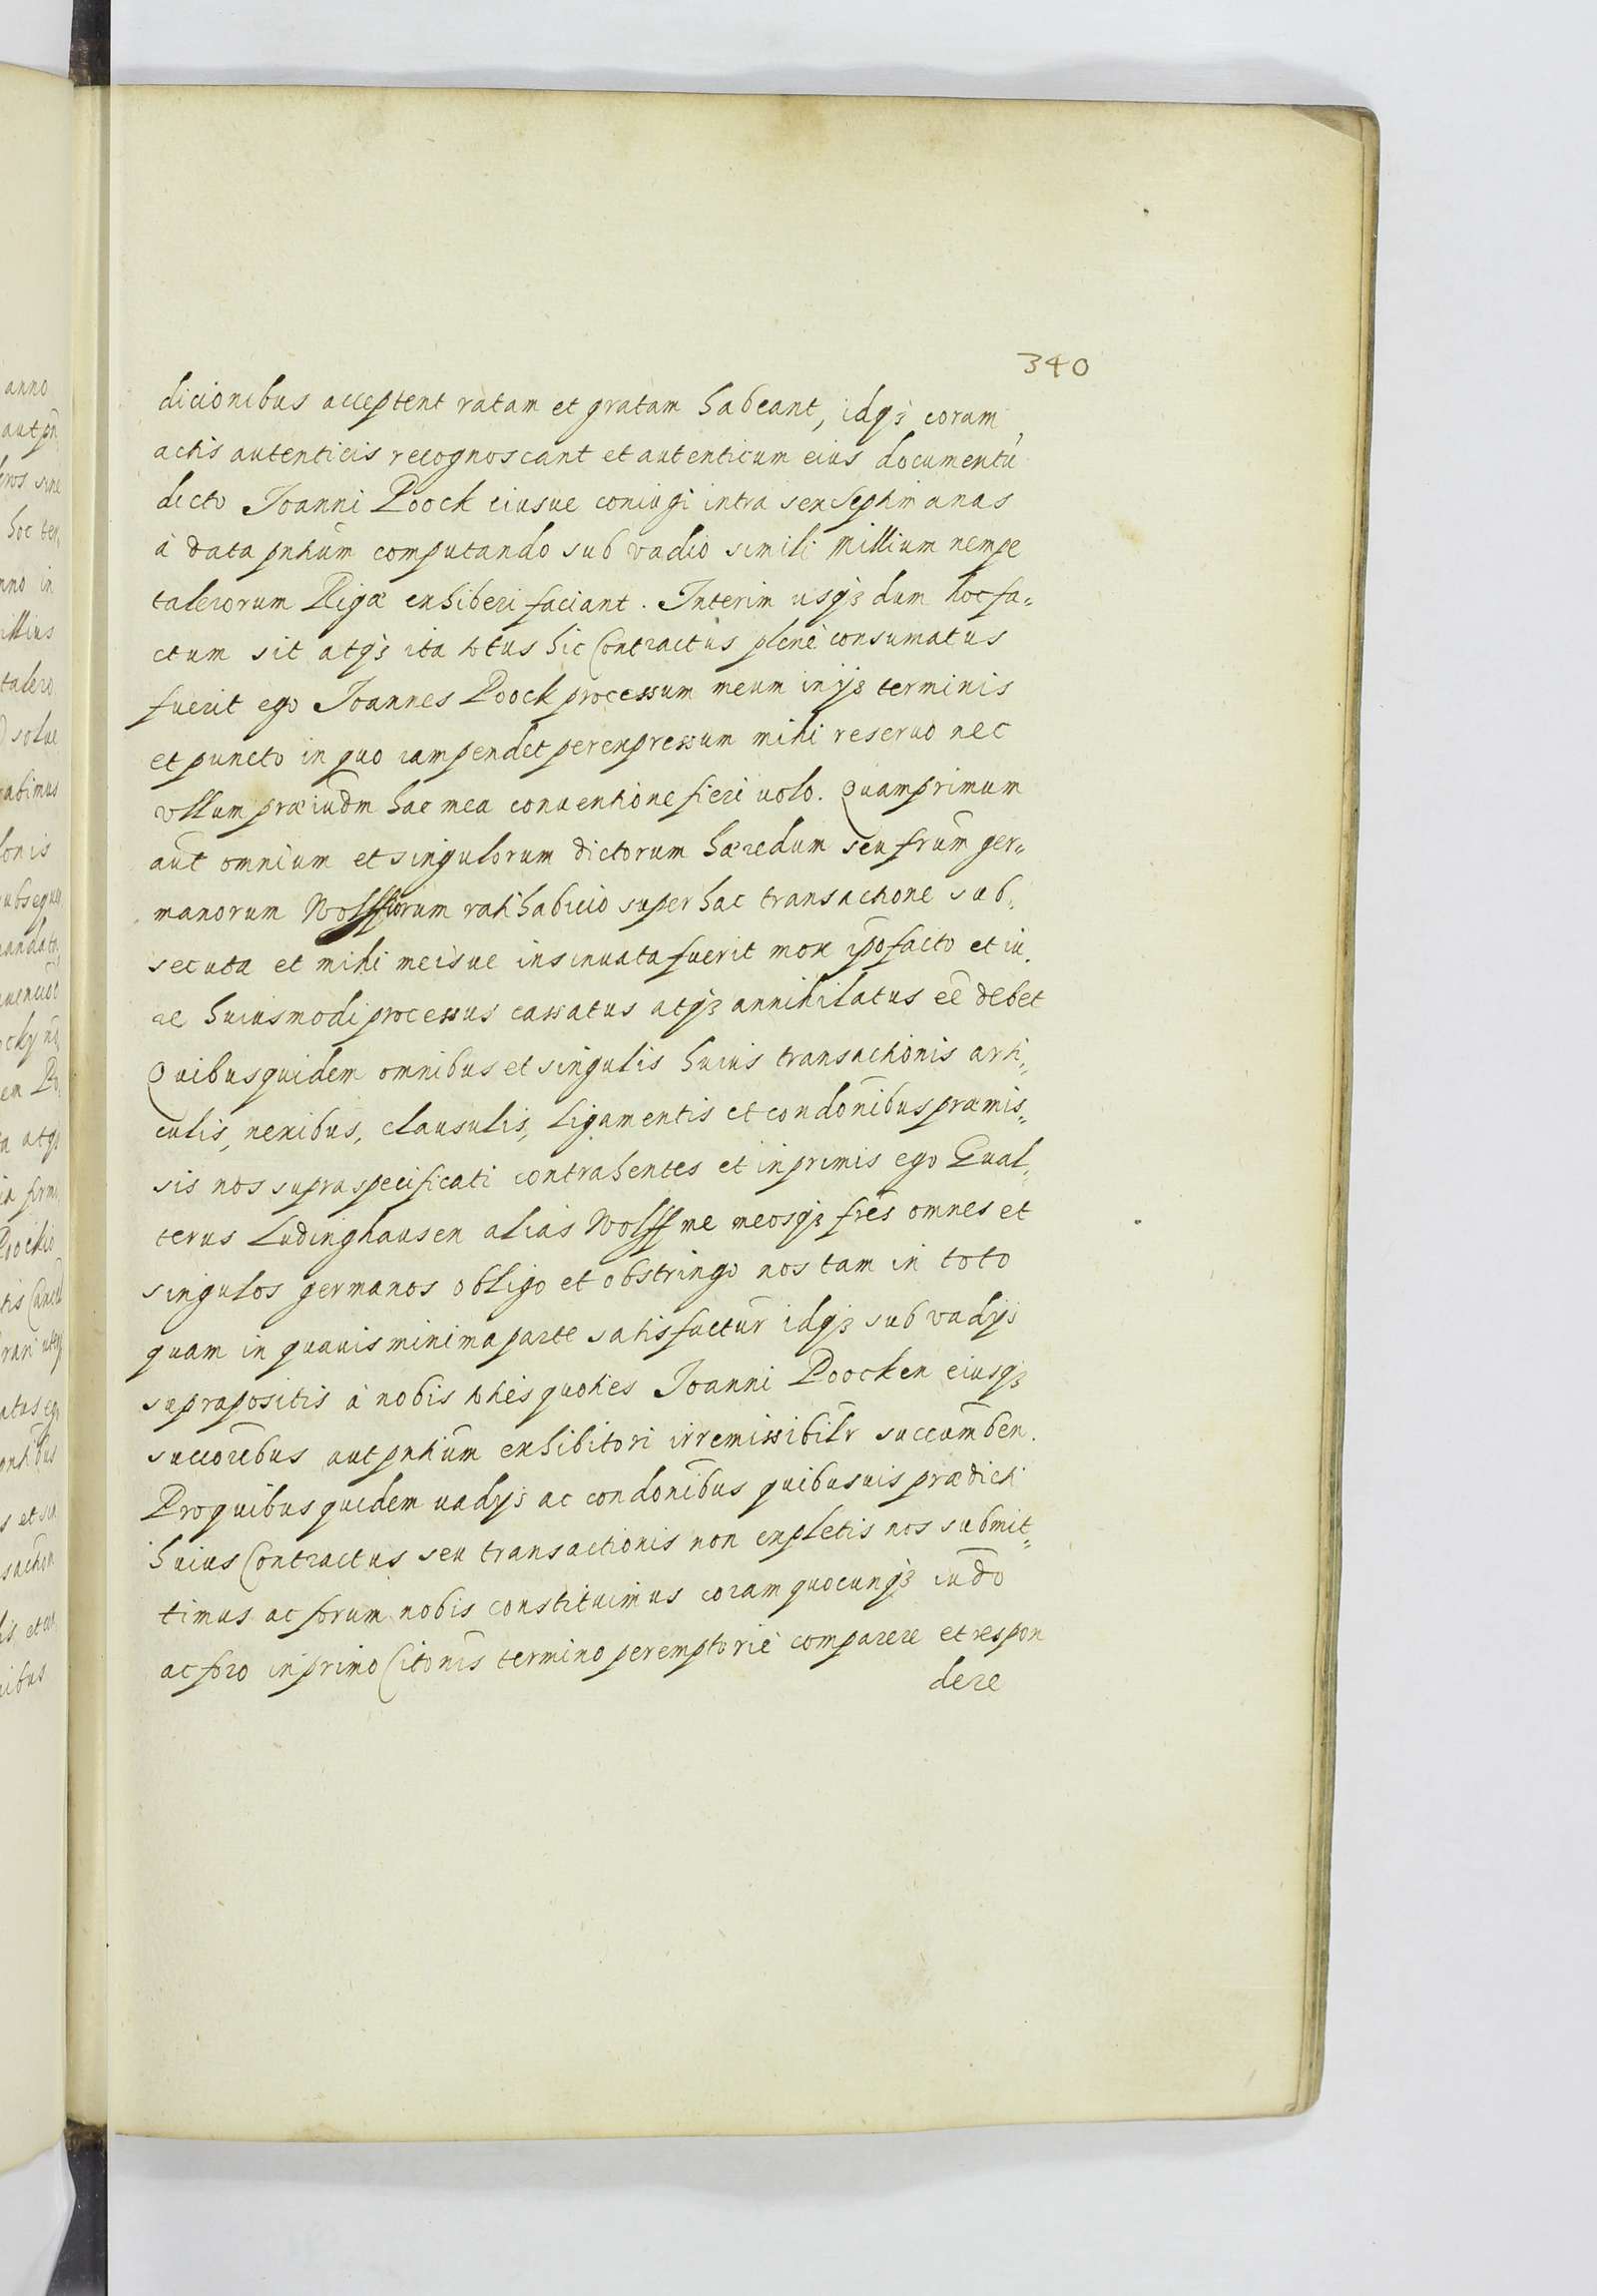 340
dicionibus acceptent ratam et gratam habeant, idqꝫ coram
actis autenticis recognoscant et autenticum eius documentū
dicto Joanni Poock eiusue coniugi intra sex septimanas
à data pn̄tium computando sub vadio simili Millium nempe
talerorum Rigæ exhiberi faciant. Interim usqꝫ dum hoc fa„
ctum sit atqꝫ ita totus hic Contractus plenè consumatus
fuerit ego Joannes Poock processum meum in ijs terminis
et puncto in quo iam pendet per expressum mihi reseruo nec
vllum præiud̄m hac mea conuentione fieri uolo. Quamprimum
aūt omnium et singulorum dictorum hæredum seu fr̄um ger„
manorum Wolffiorum ratihabicio super hac transactione sub„
secuta et mihi meisue insinuata fuerit mox ip̄o facto et iu„
re huiusmodi processus cassatus atqꝫ annihilatus eē debet
Quibusquidem omnibus et singulis huius transactionis arti„
culis, nexibus, clausulis, ligamentis et condōnibus præmis„
sis nos supraspecificati contrahentes et inprimis ego Gual„
terus Ludinghausen alias Wolff me meosqꝫ fr̄es omnes et
singulos germanos obligo et obstringo nos tam in toto
quam in quauis minima parte satisfactur̄ idqꝫ sub vadijs
suprapositis à nobis toties quoties Joanni Poocken eiusqꝫ
succorībus aut pn̄tium exhibitori irremissibilr̄ succumben.
Pro quibus quidem uadijs ac condōnibus quibusuis prædicti
huius Contractus seu transactionis non expletis nos submit„
timus ac forum nobis constituimus coram quocunqꝫ iud̄o
ac foro in primo Citōnis termino peremptoriè comparere et respon
dere
anno
aut pn̄
hoc ten„
nno in
illius
talero„
solue
lonis
atqꝫ
firm
ibus